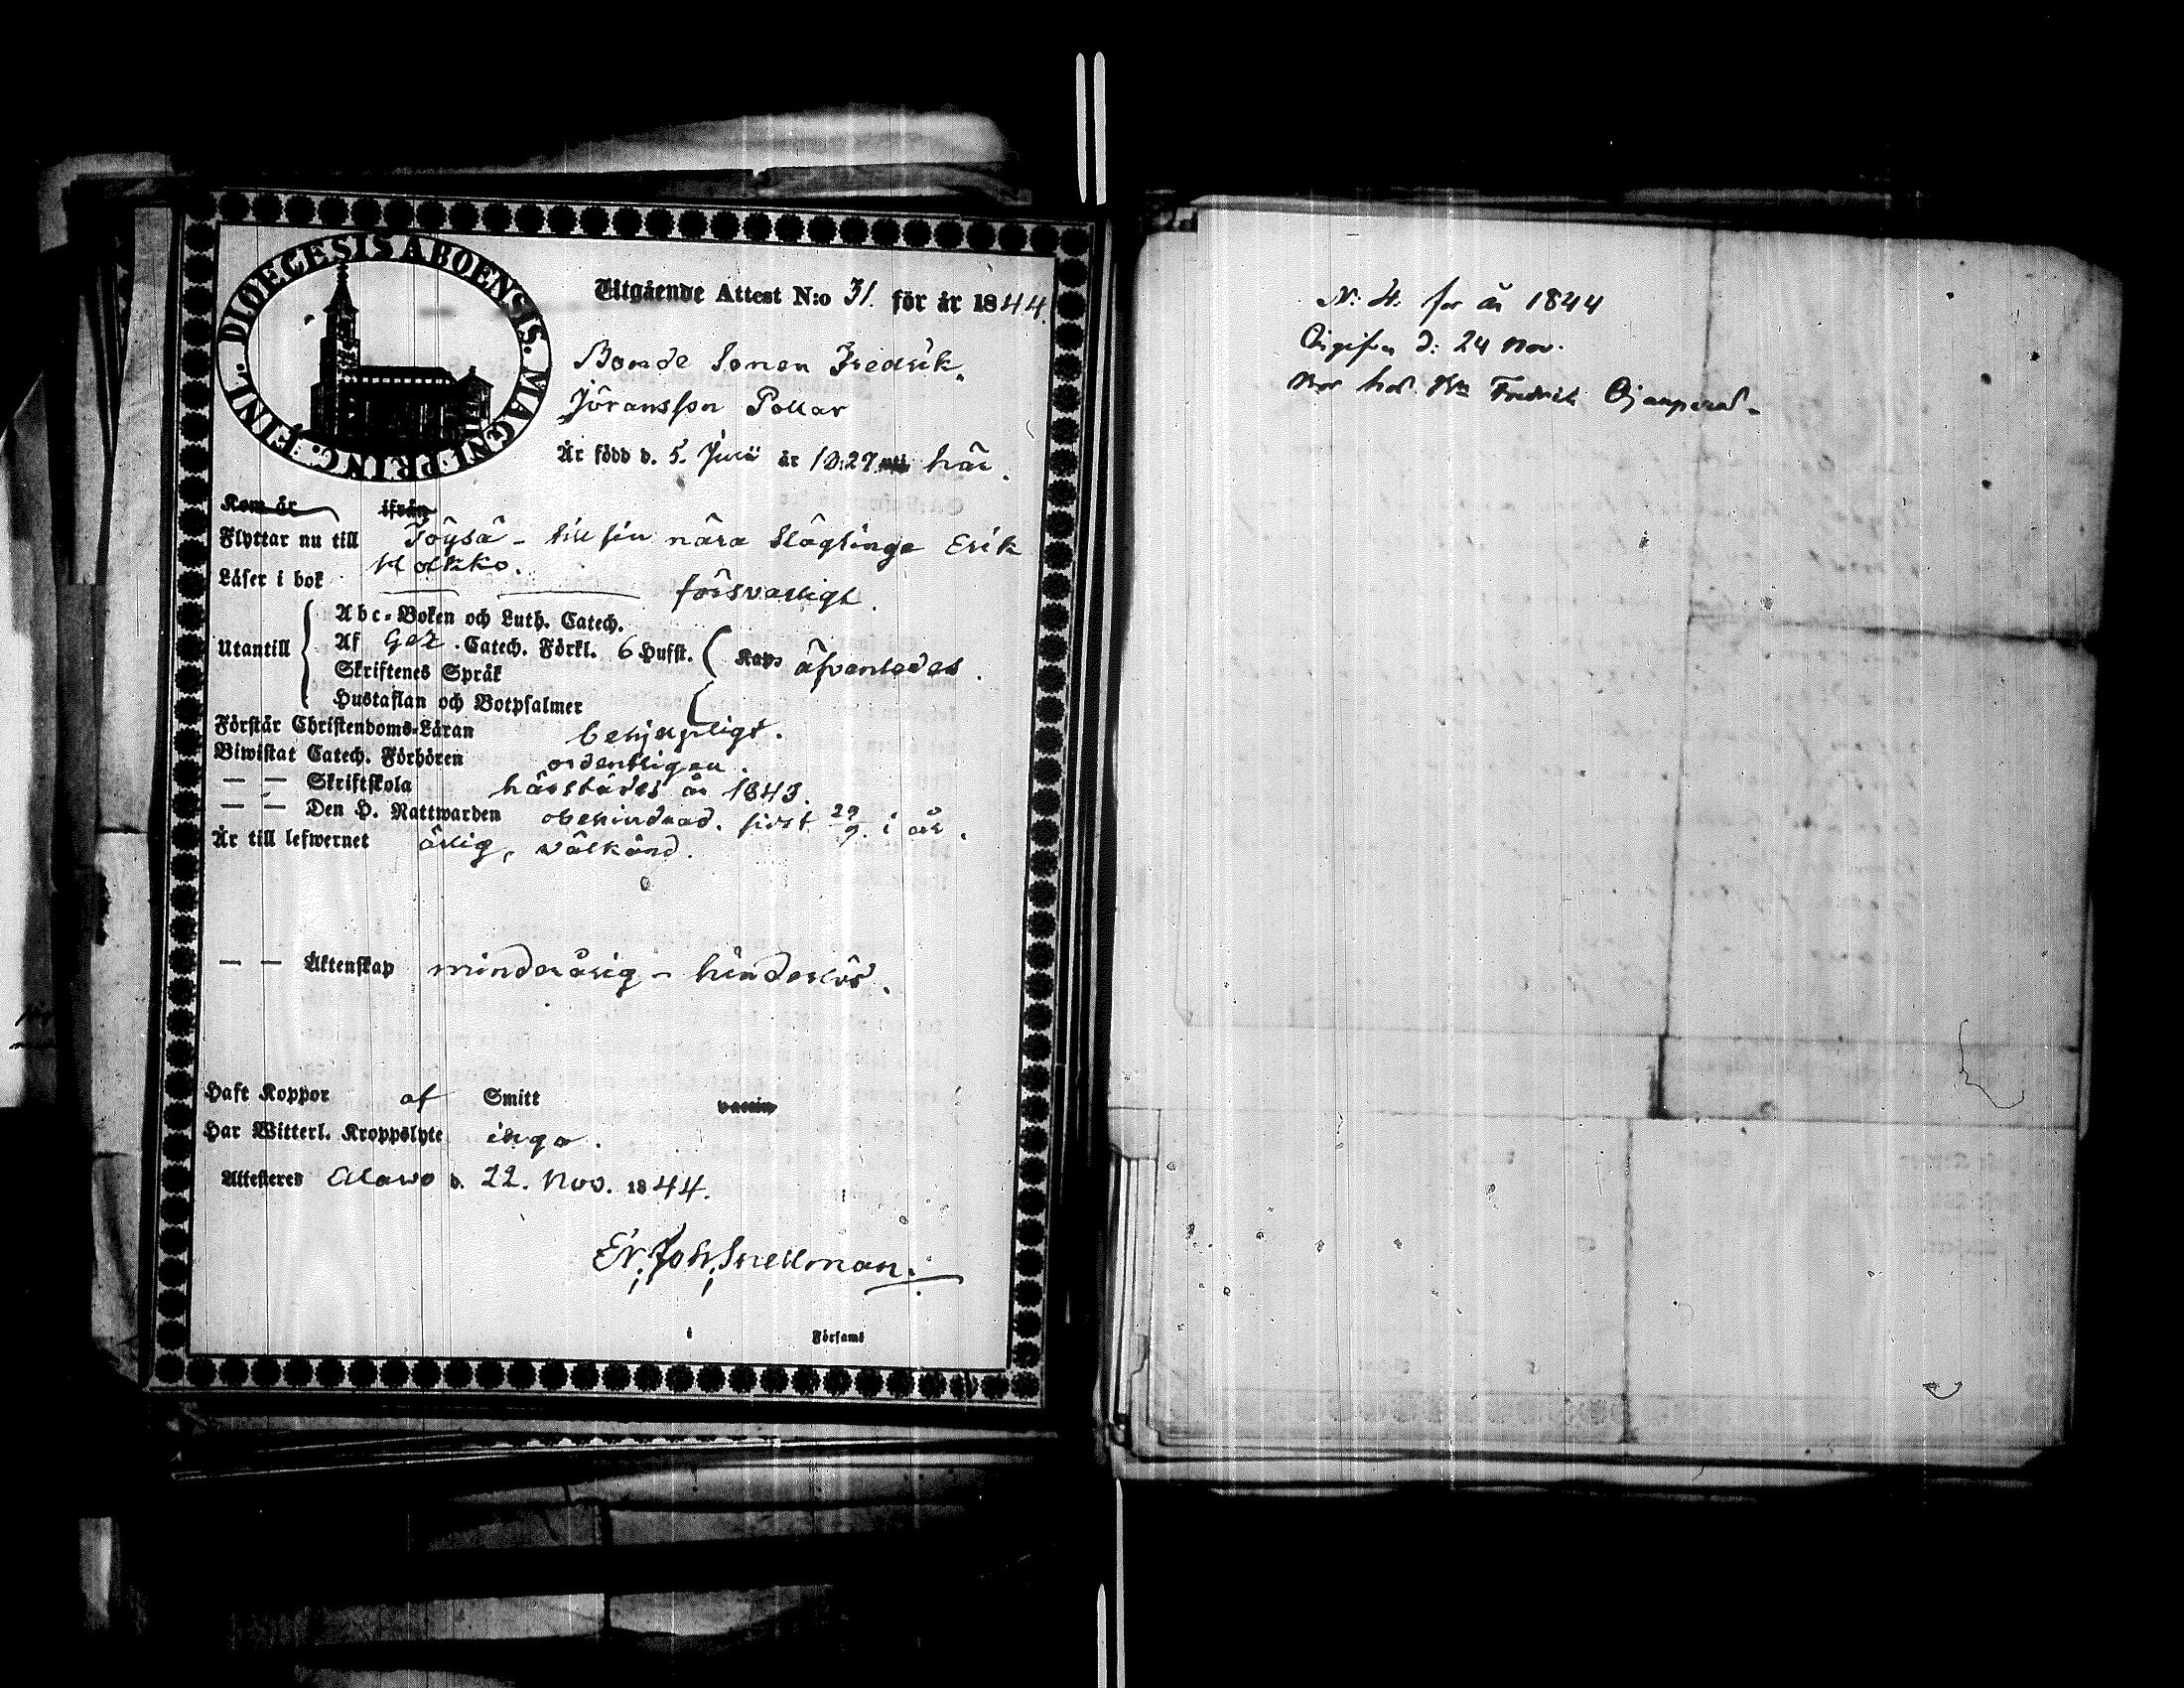 DIOECESIS ABOENSIS. MAGNI PRINC. FINL.
Utgående Attest N:o 31. för år 1844.
Bonde Sonen Fredrik
Jöransson Pollar
Är född d. 5. Juni år 1827 här.
Kom år ifrån
Flyttar nu till Töysä - till sin nära släglinge Erik
Holkko.
Läser i bok försvarligt.
Abc-Boken och Luth. Catech.
Utantill Af Gez. Catech. Förkl. 6 Hufst. Kap. äfvenledes.
Skriftenes Språk
Hustaflan och Botpsalmer
Förstår Christendoms-Läran behjelpligt.
Biwistat Catech. Förhören ordentligen.
— — Skriftskola härstädes år 1843.
— — Den H. Nattwarden obehindrad. sidst 29/9. i år.
Är till lefwernet ärlig, välkänd.
— — Äktenskap minderårig - hinderlös.
Haft Koppor af Smitt vaccin
Har Witterl. Kroppslyte inga.
Attesteras Alavo d. 22. Nov. 1844.
Er. Joh. Snellman.
i Församl
N: 4. for år 1844
d: 24 Nov.
Bor hos Fredrik